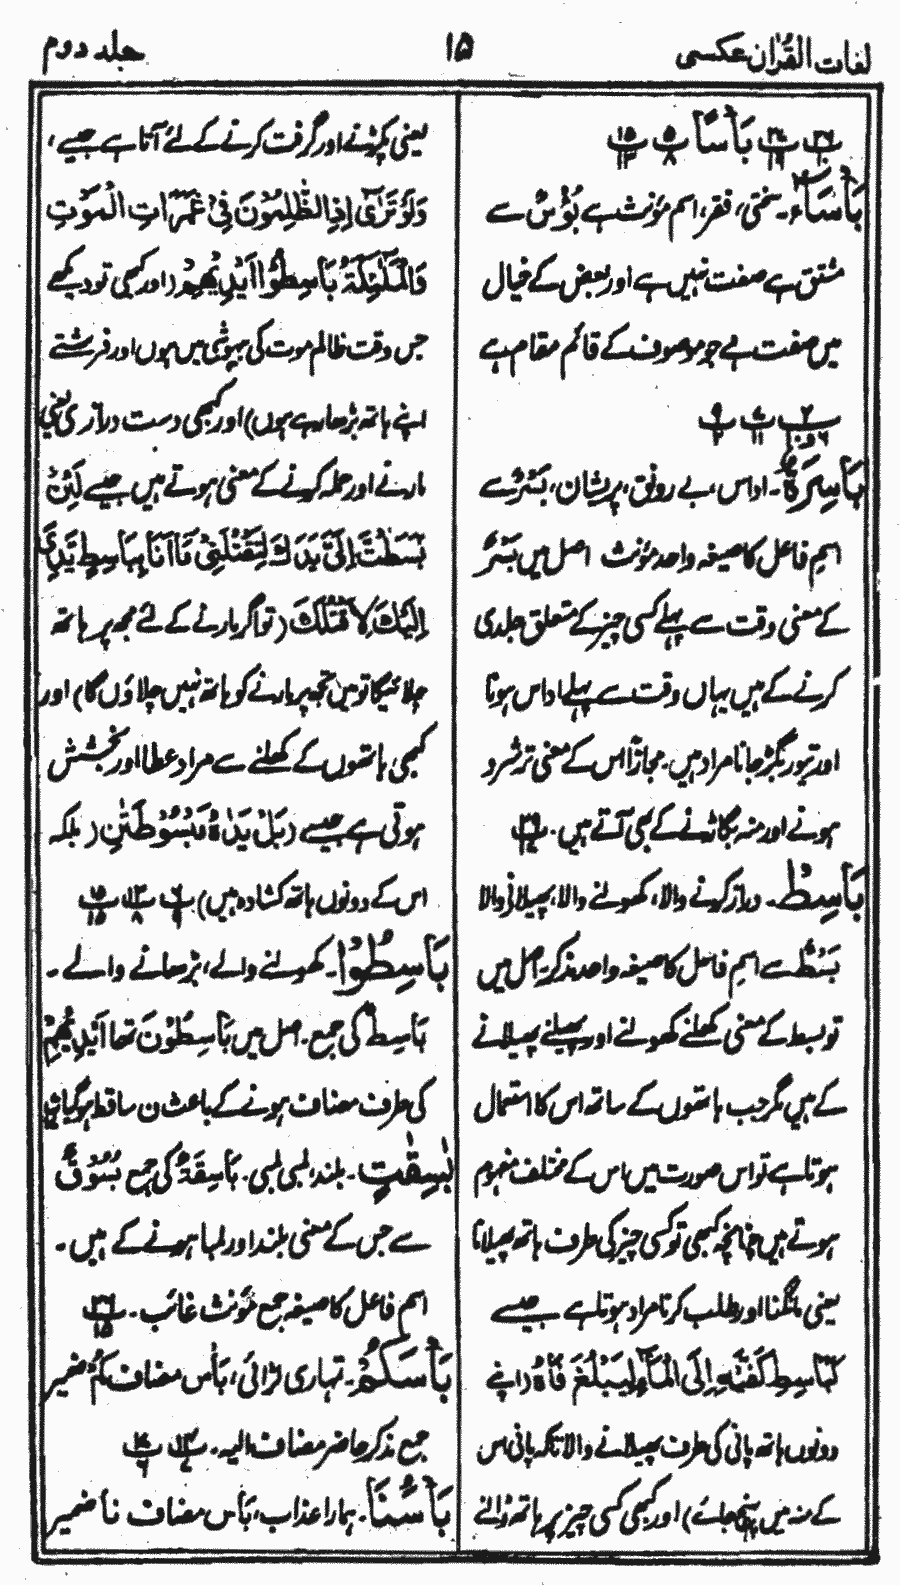 لغات القرآن عکسی
۱۵
جلد دوم
بَأْسًا
بَأْسَآءِ۔ سختی، فقر، اسم مؤنث ہے بُؤْسٌ سے
مشتق ہے صفت نہیں ہے اور بعض کے خیال
میں صفت ہے جو موصوف کے قائم مقام ہے
بَاسِرَةٌ۔ اداس، بے رونق، پریشان، بَسْرٌ سے
اسم فاعل کا صیغہ واحد مؤنث اصل میں بَسْرٌ
کے معنی وقت سے پہلے کسی چیز کے متعلق جلدی
کرنے کے ہیں یہاں وقت سے پہلے اداس ہونا
اور تیور بگڑ جانا مراد ہیں۔ مجازًا اس کے معنی ترشرو
ہونے اور منہ بگاڑنے کے بھی آتے ہیں۔
بَاسِطٌ۔ دراز کرنے والا، کھولنے والا، پھیلانیوالا
بَسْطٌ سے اسم فاعل کا صیغہ واحد مذکر۔ اصل میں
تو بسط کے معنی کھلنے کھولنے اور پھیلنے پھیلانے
کے ہیں مگر جب ہاتھوں کے ساتھ اس کا استعمال
ہوتا ہے تو اس صورت میں اس کے مختلف مفہوم
ہوتے ہیں چنانچہ کبھی تو کسی چیز کی طرف ہاتھ پھیلانا
یعنی مانگنا اور طلب کرنا مراد ہوتا ہے جیسے
كَبَاسِطِ كَفَّيْهِ اِلَى الْمَآءِ لِيَبْلُغَ فَاهُ (اپنے
دونوں ہاتھ پانی کی طرف پھیلانے والا تاکہ پانی اس
کے منہ میں پہنچ جائے) اور کبھی کسی چیز پر ہاتھ ڈالنے
یعنی پکڑنے اور گرفت کرنے کے لئے آتا ہے جیسے،
وَلَوْ تَرٰٓى اِذِ الظّٰلِمُوْنَ فِىْ غَمَرٰتِ الْمَوْتِ
وَالْمَلٰٓئِكَةُ بَاسِطُوْٓا اَيْدِيْهِمْ (اور کبھی تو دیکھے
جس وقت ظالم موت کی بیہوشی میں ہوں اور فرشتے
اپنے ہاتھ بڑھا رہے ہوں) اور کبھی دست درازی یعنی
مارنے اور حملہ کرنے کے معنی ہوتے ہیں جیسے لَئِنْۢ
بَسَطْتَّ اِلَىَّ يَدَكَ لِتَقْتُلَنِىْ مَآ اَنَا بِبَاسِطٍ يَّدِىَ
اِلَيْكَ لِاَقْتُلَكَ (تو اگر مارنے کے لئے مجھ پر ہاتھ
چلائیگا تو میں تجھ پر مارنے کو ہاتھ نہیں چلاؤں گا) اور
کبھی ہاتھوں کے کھلنے سے مراد عطا اور بخشش
ہوتی ہے جیسے (بَلْ يَدٰهُ مَبْسُوْطَتٰنِ) (بلکہ
اس کے دونوں ہاتھ کشادہ ہیں)
بَاسِطُوْا۔ کھولنے والے، بڑھانے والے۔
بَاسِطٌ کی جمع۔ اصل میں بَاسِطُوْنَ تھا اَيْدِيْهِمْ
کی طرف مضاف ہونے کے باعث ن ساقط ہو گیا
بٰسِقٰتٍ۔ بلند، لمبی لمبی۔ بَاسِقَةٌ کی جمع بُسُوْقٌ
سے جس کے معنی بلند اور لمبا ہونے کے ہیں۔
اسم فاعل کا صیغہ جمع مؤنث غائب۔
بَأْسَكُمْ۔ تمہاری لڑائی، بَأْس مضاف كُمْ ضمیر
جمع مذکر حاضر مضاف الیہ۔
بَأْسُنَا۔ ہمارا عذاب، بَأْس مضاف نا ضمیر